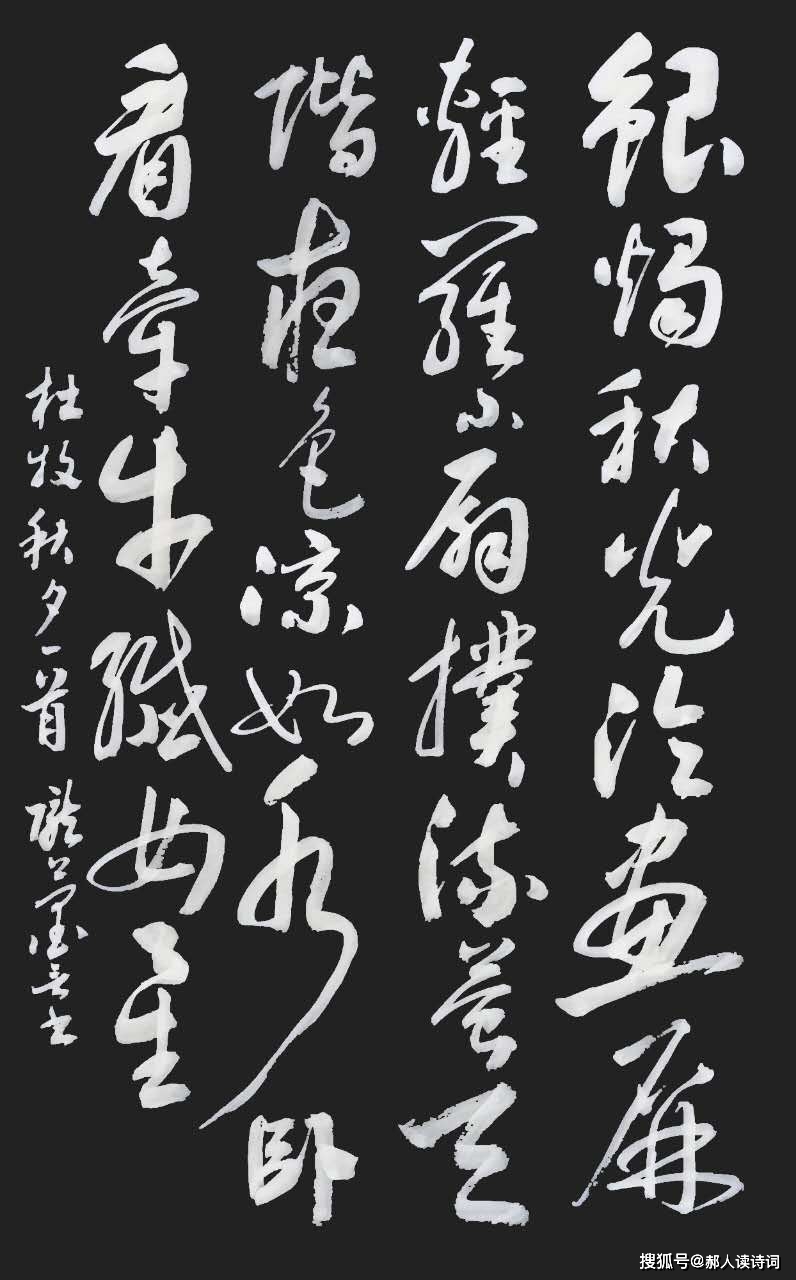 銀燭秋光冷畫屏
輕羅小扇撲流螢天
階夜色涼如水臥
看牽牛織女星
杜牧秋夕一首 墨言书
搜狐号@郝人读诗词